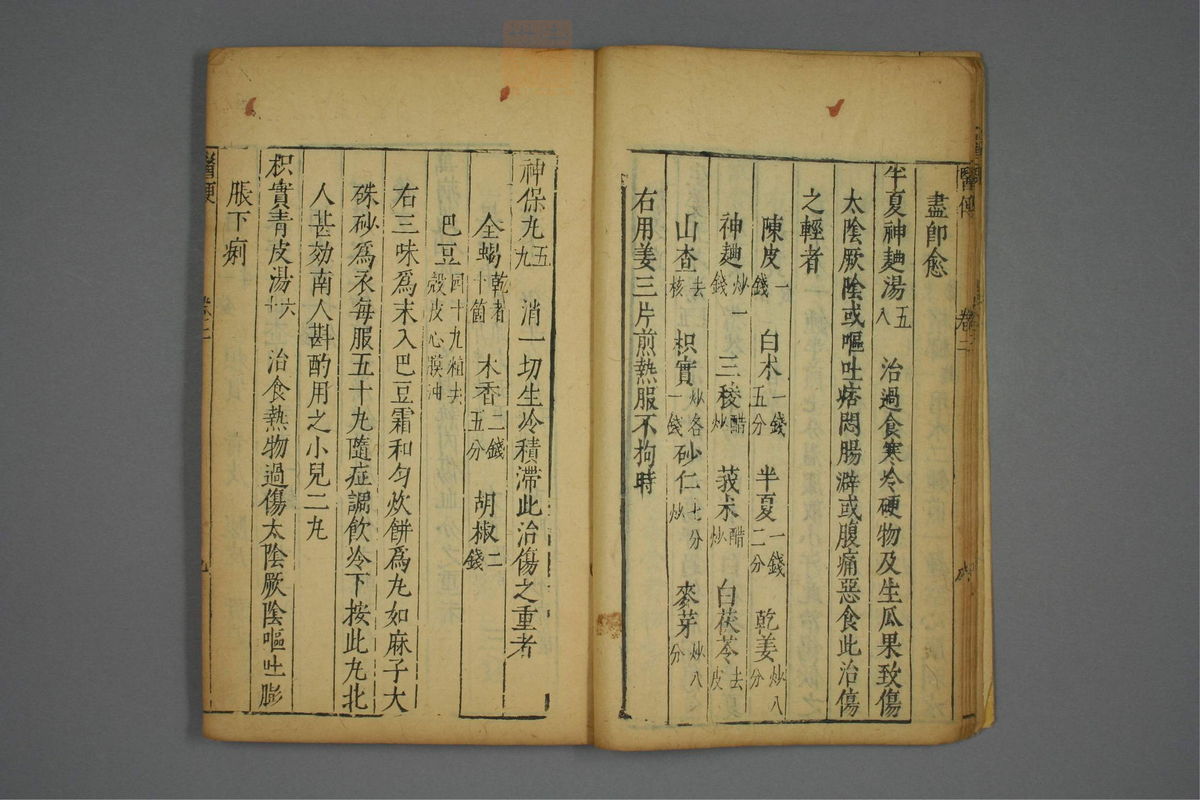 盡即愈
半夏神麯湯五八 治過食寒冷硬物及生瓜果致傷
太陰厥陰或嘔吐痞悶腸澼或腹痛惡食此治傷
之輕者
陳皮一錢 白朮一錢五分 半夏一錢二分 乾姜炒八分
神麯炒一錢 三稜醋炒 莪朮醋炒 白茯苓去皮
山查去核 枳實炒各一錢 砂仁七分炒 麥芽炒八分
右用姜三片煎熱服不拘時
神保丸五九 消一切生冷積滯此治傷之重者
全蝎乾者十箇 木香二錢五分 胡椒二錢
巴豆同十九粒去殼皮心膜油
右三味爲末入巴豆霜和勻炊餅爲丸如麻子大
硃砂爲衣每服五十丸隨症調飲冷下按此丸北
人甚効南人斟酌用之小兒二丸
枳實青皮湯六十 治食熱物過傷太陰厥陰嘔吐膨
脹下痢
醫便
卷二